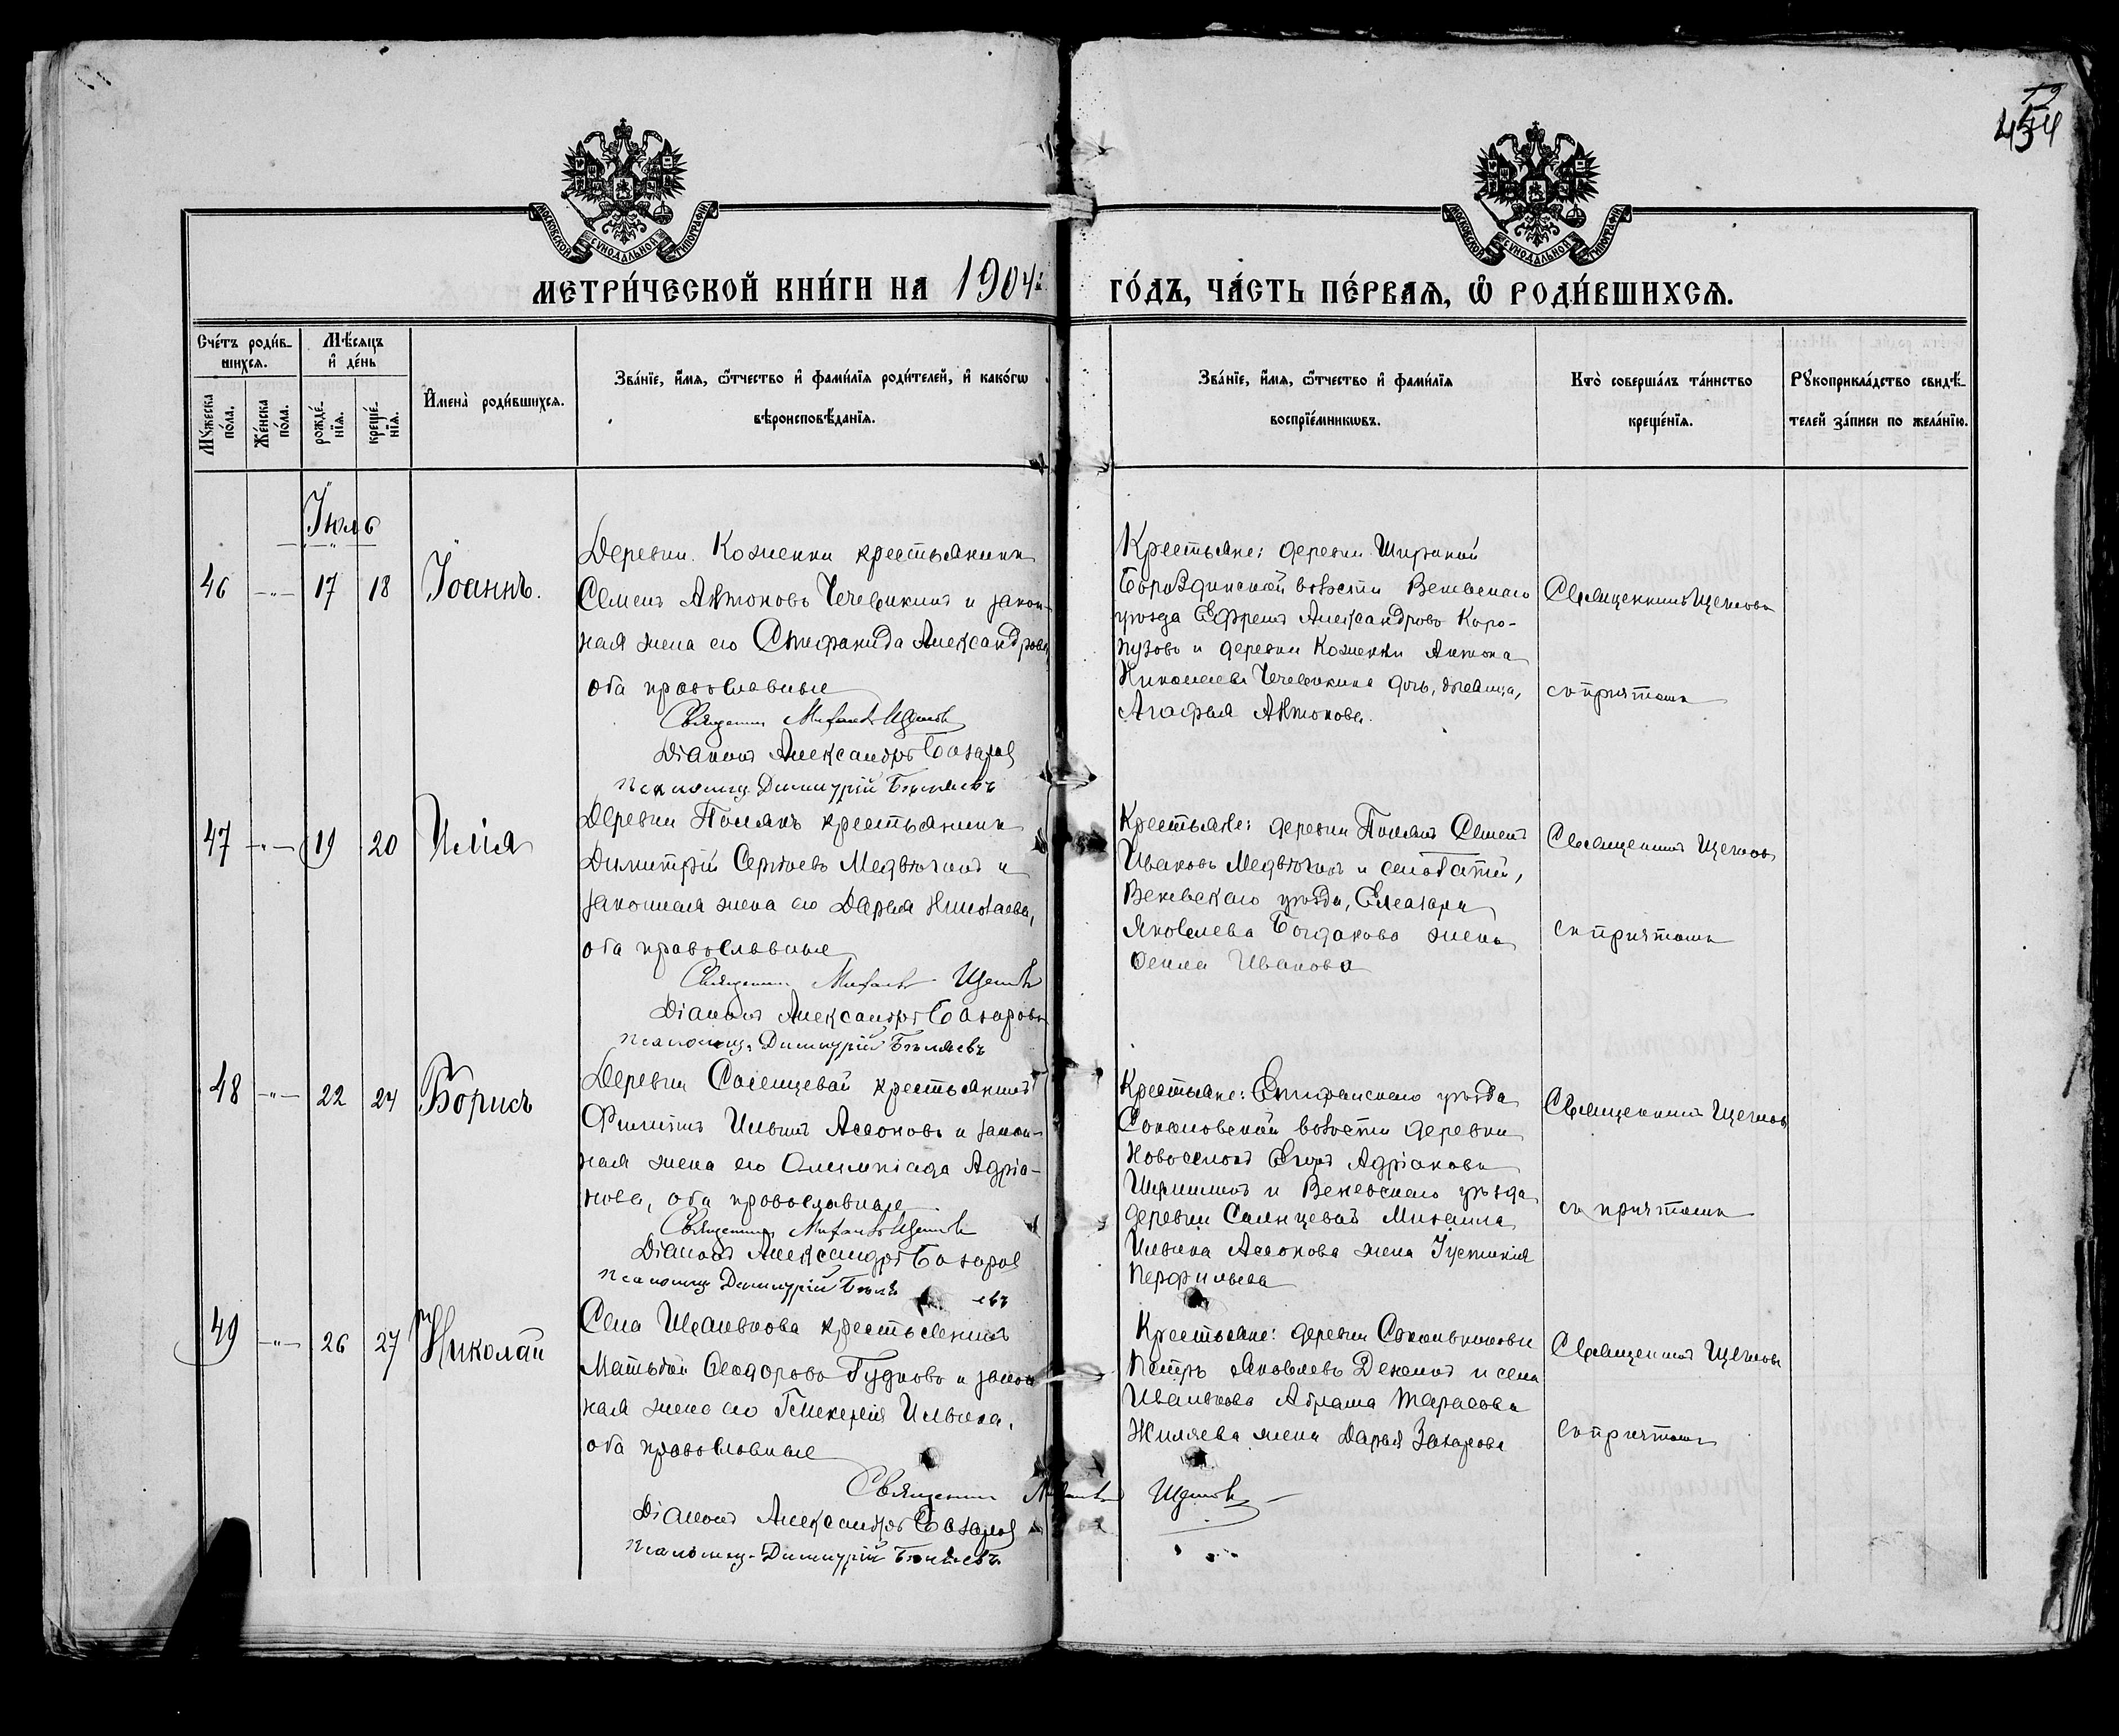 454
МОСКОВСКОЙ СѴНОДАЛЬНОЙ ТИПОГРАФІИ
МОСКОВСКОЙ СѴНОДАЛЬНОЙ ТИПОГРАФІИ
МЕТРИ́ЧЕСКОЙ КНИ́ГИ НА 1904й ГО́ДЪ, ЧА́СТЬ ПЕ́РВАѦ, Ѽ РОДИ́ВШИХСѦ.
Сче́тъ роди́в-
шихсѧ.
Мѣ́сѧцъ
и҆ де́нь
Мꙋ́жеска
по́ла.
Же́нска
по́ла.
рожде́-
нїѧ.
креще́-
нїѧ.
И҆мена̀ роди́вшихсѧ.
Зва́нїе, и҆́мѧ, ѻ҆́тчество и҆ фами́лїѧ роди́телей, и҆ како́гѡ
вѣроисповѣ́данїѧ.
Зва́нїе, и҆́мѧ, ѻ҆́тчество и҆ фами́лїѧ
воспрїе́мникѡвъ.
Кто̀ соверша́лъ та́инство
креще́нїѧ.
Рꙋкоприкла́дство свидѣ́-
телей за́писи по жела́нїю.
Іюль
46 -"- 17 18 Іоаннъ.
Деревни Коженки крестьянинъ
Семенъ Антоновъ Чечевикинъ и закон-
ная жена его Стефанида Александрова
оба православные
Священникъ Михаилъ Щегловъ
Діаконъ Александръ Базаров
Псаломщ. Димитрій Бѣляевъ
Крестьяне: деревни Широкой
волости Веневскаго
уѣзда Ефремъ Александровъ Каро-
пузовъ и деревни Коженки Антона
Николаева Чечевикина дочь, девица,
Агафья Антонова.
Священникъ Щегловъ
съ причтомъ
47 -"- 19 20 Илія
Деревни Полянъ крестьянинъ
Димитрій Сергѣевъ Медвѣдкинъ и
законная жена его Дарья Николаева,
оба православные
Священникъ Михаилъ Щегловъ
Діаконъ Александръ Базаровъ
Псаломщ. Димитрій Бѣляевъ
Крестьяне: деревни Полянъ Семенъ
Ивановъ и села
Веневскаго уѣзда, Елеазара
Яковлева Богданова жена
Ѳекла Иванова
Священникъ Щегловъ
съ причтомъ
48 -"- 22 24 Борисъ
Деревни Солнцевой крестьянинъ
Филиппъ Ильинъ Асоновъ и закон-
ная жена его Олимпіада Адріа-
нова, оба православные
Священникъ Михаилъ Щегловъ
Діаконъ Александръ Базаров
Псаломщ Димитрій Бѣляевъ
Крестьяне: Епифанскаго уѣзда
волости деревни
Новоселокъ Егоръ Адріановъ
и Веневскаго уѣзда
деревни Солнцевой Михаила
Ильина Асонова жена Іустинія
Перфильева
Священникъ Щегловъ
съ причтомъ
49 -"- 26 27 Николай
Села Иванькова крестьянинъ
Матвей Ѳеодоровъ Гудковъ и закон-
ная жена его Гликерія Ильина,
оба православные
Священникъ Михаилъ Щегловъ
Діаконъ Александръ Базаров
Псаломщ. Димитрій Бѣляевъ
Крестьяне: деревни Сокольниковки
Петръ Яковлевъ и села
Иванькова Абрама Тарасова
Жиляева жена Дарья Захарова
Священникъ Щегловъ
съ причтомъ